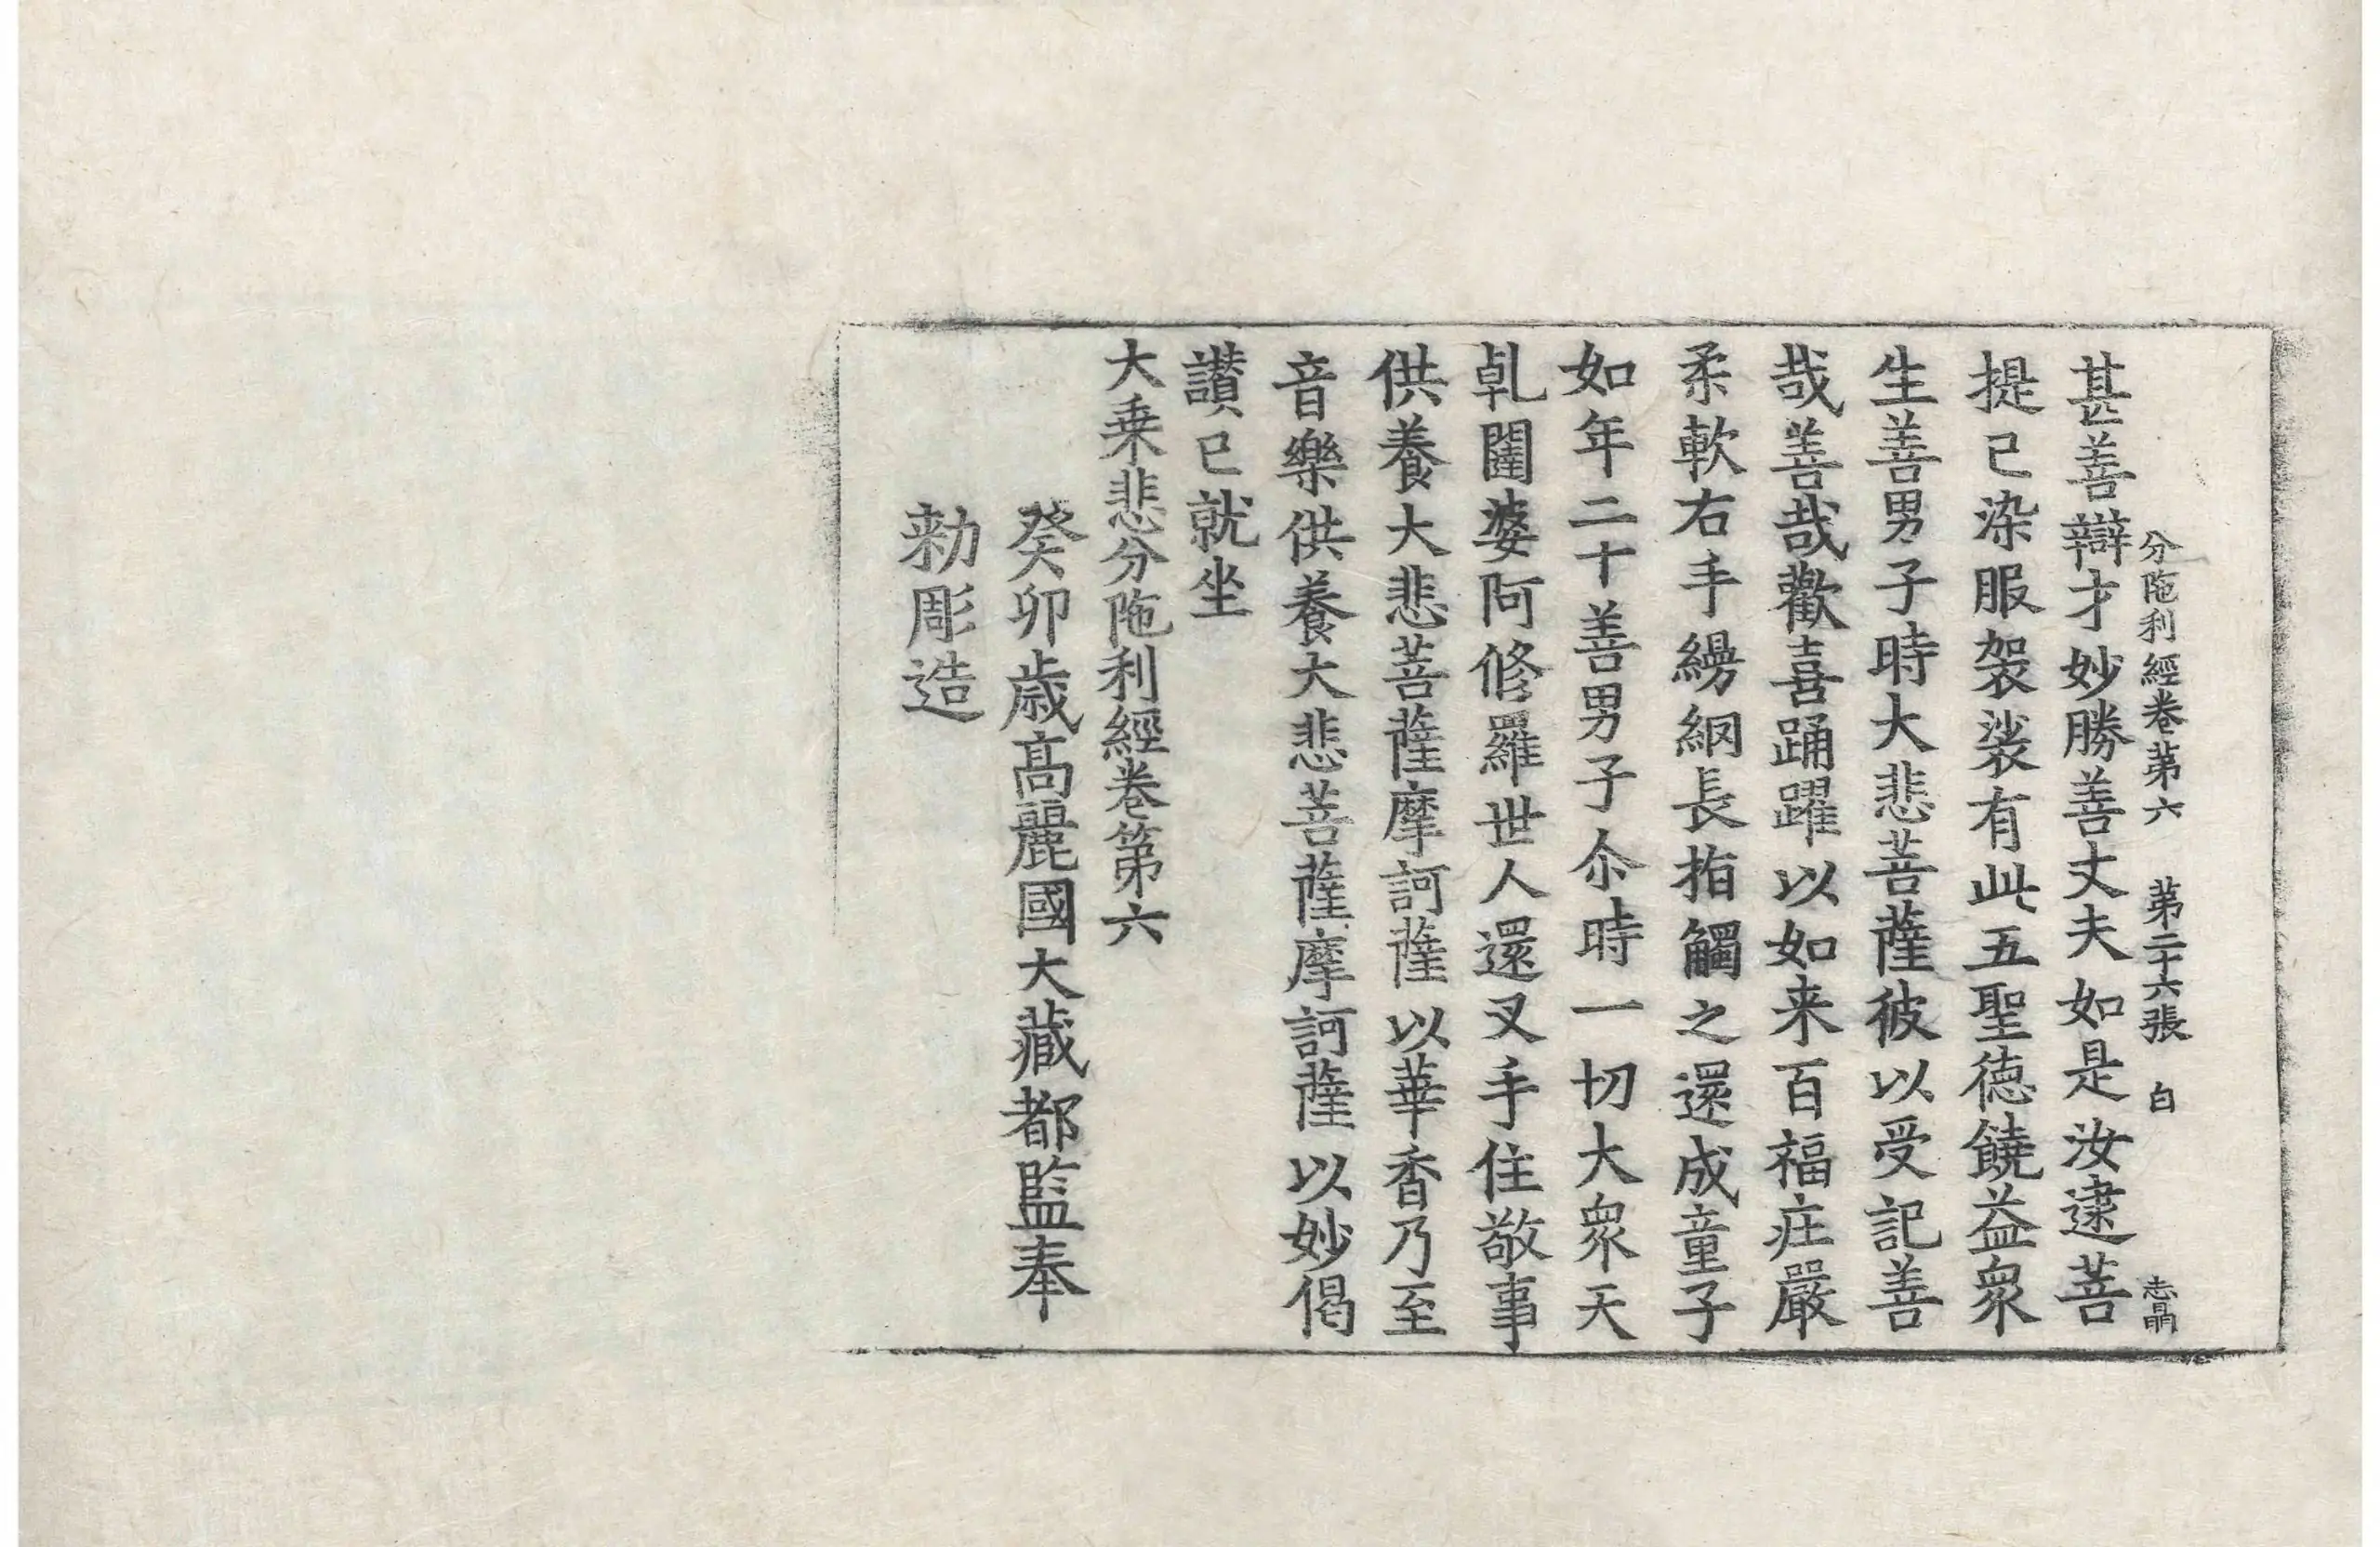 分陁利經卷第六 第二十六張 白 志晶
甚善辯才妙勝善丈夫如是汝逮菩
提已染服袈裟有此五聖德饒益衆
生善男子時大悲菩薩彼以受記善
哉善哉歡喜踊躍以如来百福庄嚴
柔軟右手縵網長指觸之還成童子
如年二十善男子尒時一切大衆天
乹闥婆阿修羅世人還叉手住敬事
供養大悲菩薩摩訶薩以華香乃至
音樂供養大悲菩薩摩訶薩以妙偈
讃已就坐
大乗悲分陁利經卷第六
癸卯歳髙麗國大藏都監奉
勑彫造